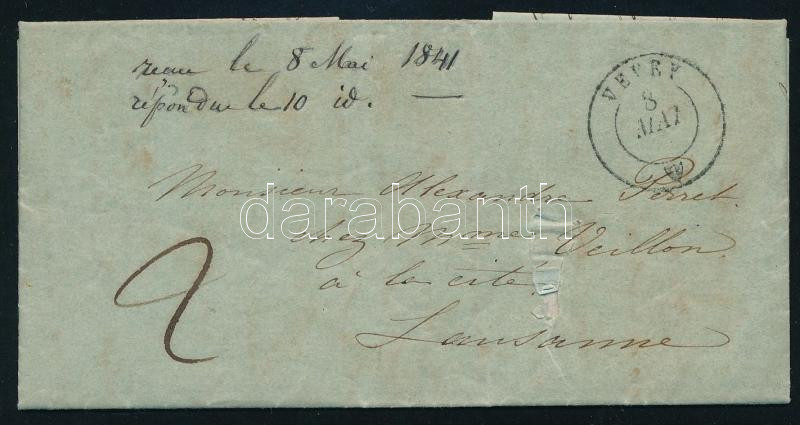 reçu le 8 Mai 1841
répondu le 10 id. —
VEVEY
8
MAI
Monsieur Alexandre Perret.
chez Mme Veillon.
à la cité
Lausanne
2
darabanth